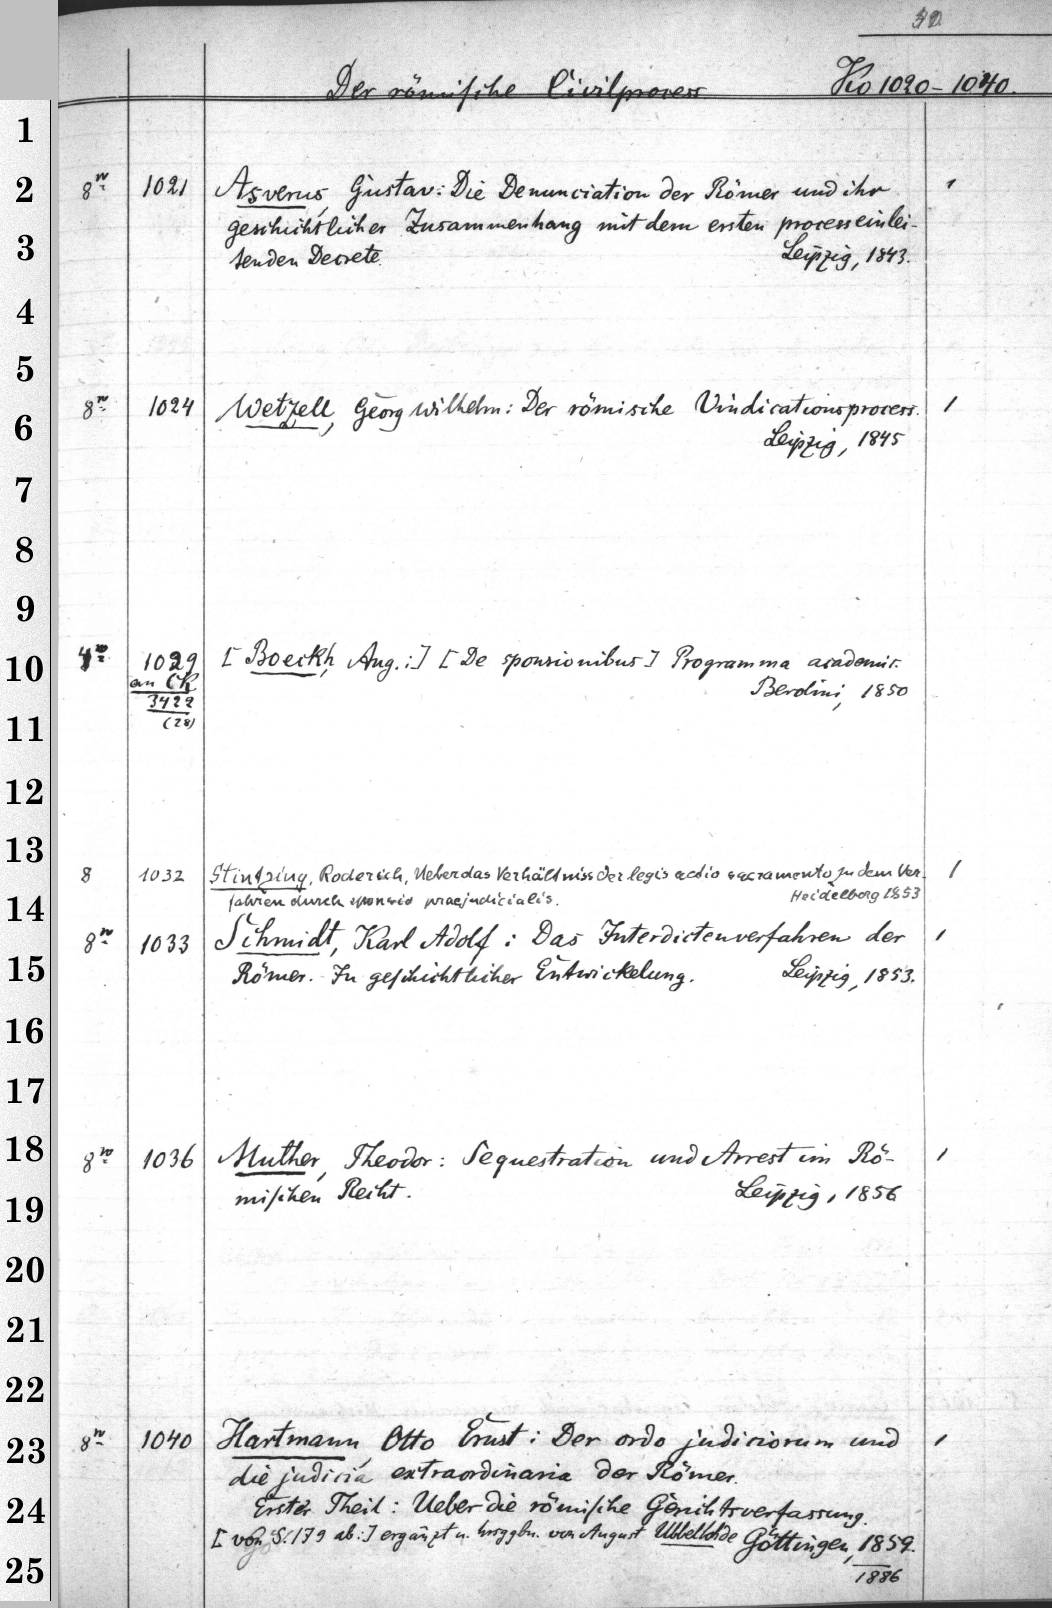 32
Der römische Civilprocess Ko 1020-1040.
1
2 8vo 1021 Asverus, Gustav: Die Denunciation der Römer und ihr 1
geschichtlicher Zusammenhang mit dem ersten processeinlei-
3 tenden Decrete. Leipzig, 1843.
4
5
8vo 1024 Wetzell, Georg Wilhelm: Der römische Vindicationsprocess. 1
6 Leipzig, 1845
7
8
9
10 4to 1029 [Boeckh, Aug.:] [De sponsionibus] Programma academic.
an CK Berolini, 1850
3422
11 (28)
12
13
8 1032 Stintzing, Roderich, Ueber das Verhältniss der legis actio sacramento zu dem Ver- 1
14 fahren durch sponsio praejudicialis. Heidelberg 1853
8vo 1033 Schmidt, Karl Adolf: Das Interdictenverfahren der 1
15 Römer. In geschichtlicher Entwickelung. Leipzig, 1853.
16
17
18 8vo 1036 Muther, Theodor: Sequestration und Arrest im Rö- 1
19 mischen Recht. Leipzig, 1856
20
21
22
23 8vo 1040 Hartmann, Otto Ernst: Der ordo judiciorum und 1
die judicia extraordinaria der Römer.
24 Erster Theil: Ueber die römische Gerichtsverfassung.
[von S. 179 ab:] ergänzt u. hrsggbn. von August Ubbelohde Göttingen, 1859.
25 1886